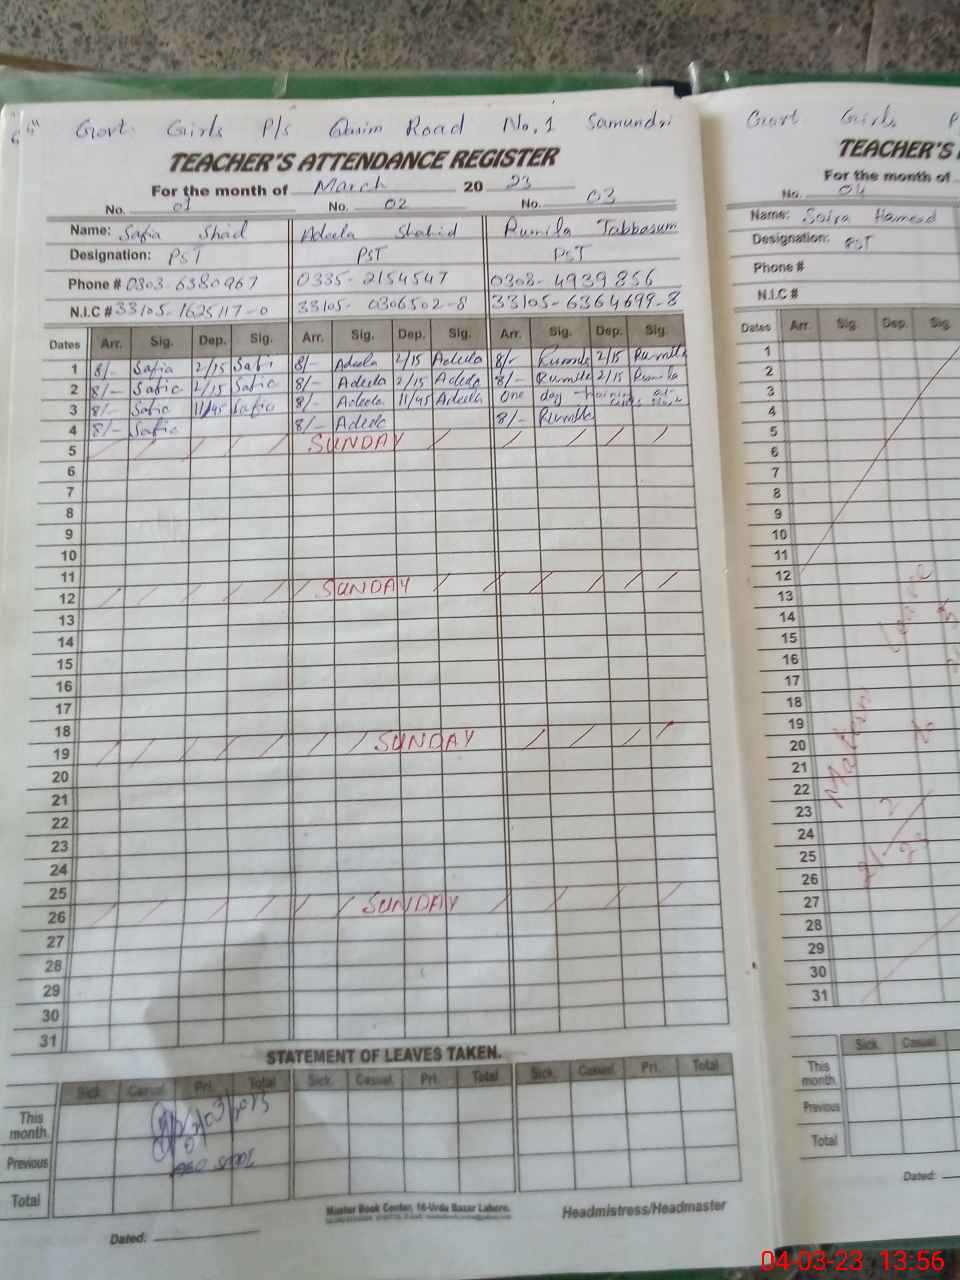 Govt. Girls P/s Qaim Road No, 1 Samundri
TEACHER'S ATTENDANCE REGISTER
For the month of March 20 23
No. 01 No. 02 No. 03
Name: Safia Shad Adeela Shahid Rumila Tabbasum
Designation: PST PST PST
Phone # 0303-6380967 0335-2154547 0308-4939856
N.I.C # 33105-1625117-0 33105-0306502-8 33105-6364699-8
Dates Arr. Sig. Dep. Sig. Arr. Sig. Dep. Sig. Arr. Sig. Dep. Sig.
1 8/- Safia 2/15 Safi 8/- Adeela 2/15 Adeela 8/- Rumila 2/15 Rumila
2 8/- Safia 2/15 Safia 8/- Adeela 2/15 Adeela 8/- Rumila 2/15 Rumila
3 8/- Safia 11/45 Safia 8/- Adeela 11/45 Adeela One day
4 8/- Safia 8/- Adeela 8/- Rumila
5 SUNDAY
6
7
8
9
10
11
12 SUNDAY
13
14
15
16
17
18
19 SUNDAY
20
21
22
23
24
25
26 SUNDAY
27
28
29
30
31
STATEMENT OF LEAVES TAKEN.
Sick Casual Pri. Total Sick. Casual. Pri. Total Sick. Casual. Pri. Total
This month.
Previous
Total
Master Book Center, 16-Urdu Bazar Lahore.
Headmistress/Headmaster
Dated:
Govt Girls P
TEACHER'S
For the month of
No. 04
Name: Saira Hameed
Designation: PST
Phone #
N.I.C #
Dates Arr. Sig. Dep. Sig.
1
2
3
4
5
6
7
8
9
10
11
12
13
14
15
16
17
18
19
20
21
22
23
24
25
26
27
28
29
30
31
Leave
Sick. Casual.
This month.
Previous
Total
Dated:
04-03-23 13:56